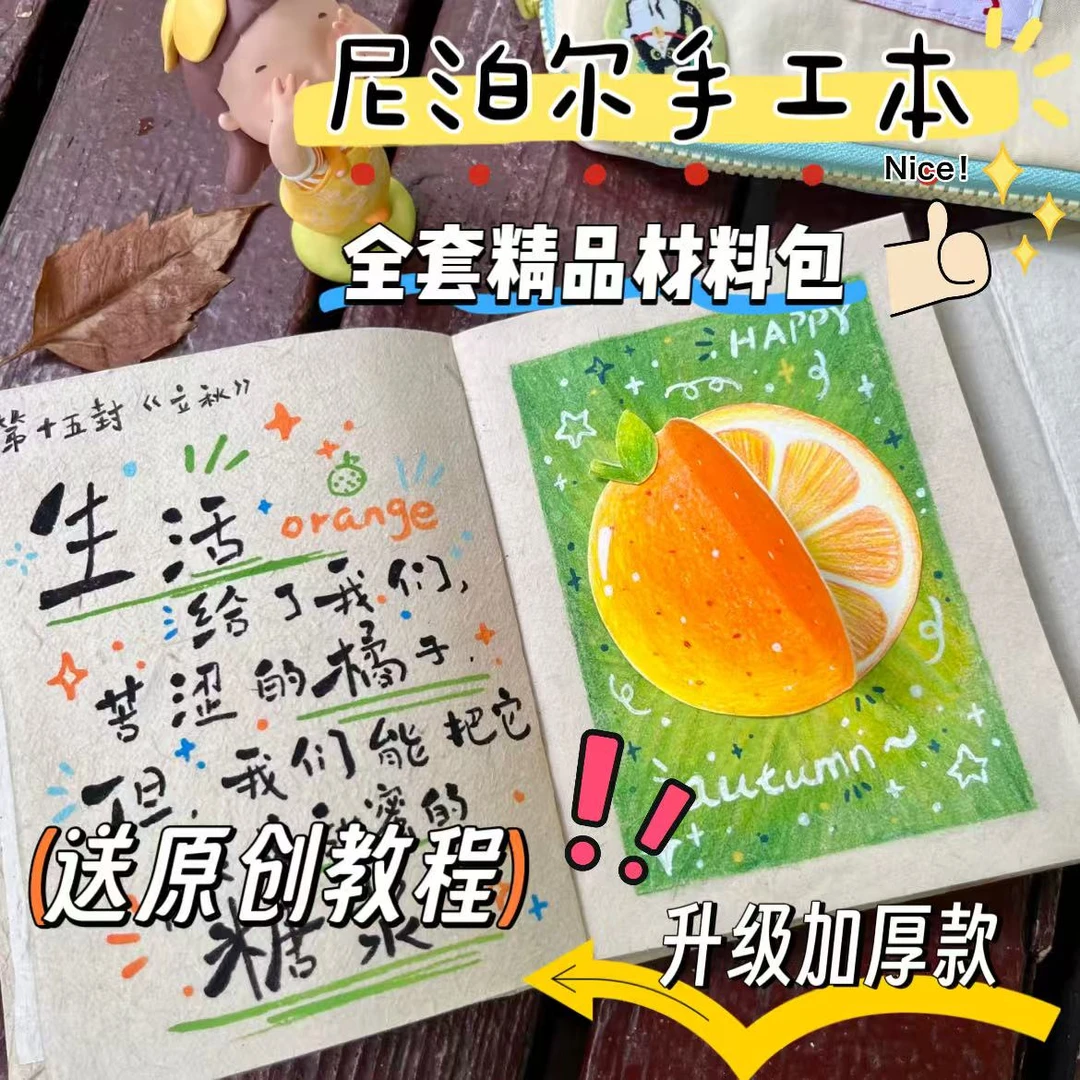 尼泊尔手工本
Nice!
全套精品材料包
HAPPY
第十五封《立秋》
生活
orange
给了我们,
苦涩的橘子.
但,我们能把它
蜜的
(送原创教程)
糖浆
autumn~
!!
升级加厚款